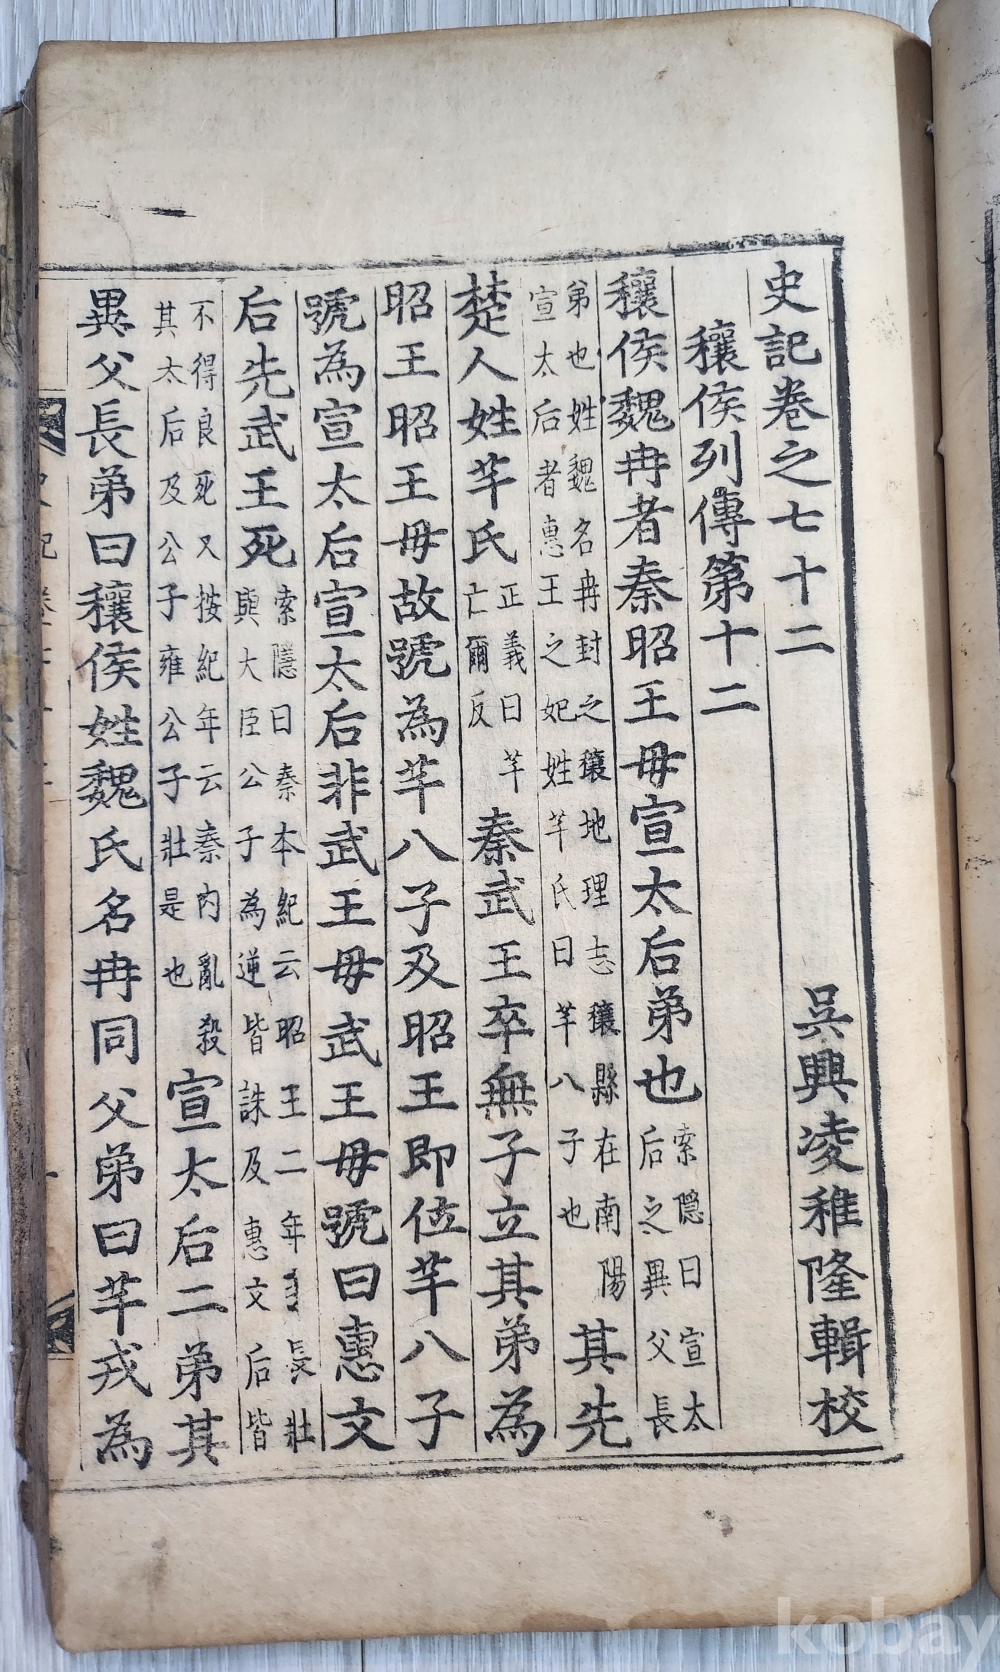 史記卷之七十二
吳興凌稚隆輯校
穰侯列傳第十二
穰侯魏冉者秦昭王毋宣太后弟也索隱曰宣太后之異父長
弟也姓魏名冉封之穰地理志穰縣在南陽宣太后者惠王之妃姓芊氏曰芊八子也其先
楚人姓芊氏正義曰芊亡爾反秦武王卒無子立其弟為
昭王昭王毋故號為芊八子及昭王即位芊八子
號為宣太后宣太后非武王毋武王毋號曰惠文
后先武王死索隱曰秦本紀云昭王二年長壯與大臣公子為逆皆誅及惠文后皆
不得良死又按紀年云秦內亂殺其太后及公子雍公子壯是也宣太后二弟其
異父長弟曰穰侯姓魏氏名冉同父弟曰芊戎為
kobay